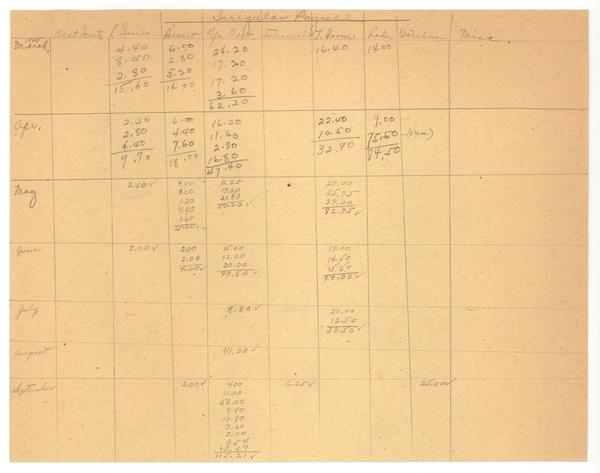 Irregular Payroll
1945 Asst Insts, Asst T. Room Labor Watchman Misc
March 4.40 6.00 24.20 16.40 14.00
8.40 2.80 17.20
2.80 5.20 17.20
15.60 14.00 3.60
62.20
Apr. 2.50 6.00 16.20 22.40 9.00
2.80 4.40 11.60 10.50 75.50
4.40 7.60 2.80 32.90 84.50
9.70 18.00 16.80
47.40
May 2.40✓ 11.20 20.00
8.00 17.20
1.20 27.00
4.40 82.75✓
1.60
June 2.00✓ 2.00 15.00 14.00
2.00 12.80 14.50
4.00✓ 20.00 15.50
47.80✓ 44.00✓
July 8.80✓ 20.00
12.50
32.50✓
August 41.00✓
September 2.00✓ 4.00 6.25✓ 25.00✓
11.00
56.00
4.80
10.80
3.60
2.00
9.54
115.21✓